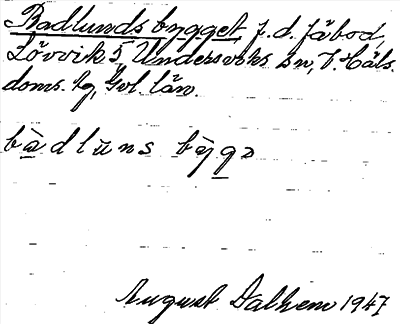 Badlundsbygget f.d. fäbod,
Lövvik 5, Undersviks sn, V. Häls.
doms. tg, Gvl. län.
bàdlùns bỳgə
August Dalhem 1947